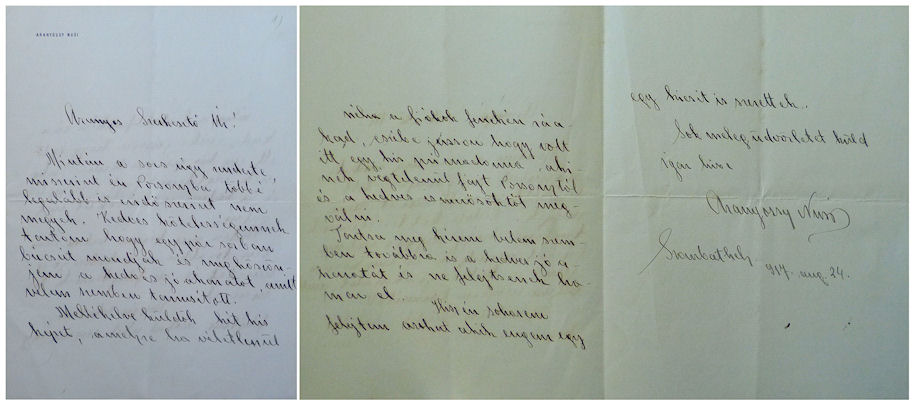 1)
ARANYOSSY NUSI
Aranyos Szerkesztő Úr!
Miután a sors úgy rendelte,
miszerint én Pozsonyba többé
legalább is időszerint nem
megyek. Kedves kötelességemnek
tartom hogy egy pár sorban
búcsút mondjak és megköszön-
jem a kedves jóakaratot, amit
velem szemben tanusított.
Mellékelve küldök két kis
képet, amelyre ha véletlenül
néha a fiókok fenekén ráa-
kad, eszébe jusson hogy volt
itt egy kis primadonna, aki-
nek végtelenül fájt Pozsonytól
és a kedves ismerősöktől meg-
válni.
Tartsa meg kérem velem szem-
ben továbbra is a kedves jó a-
karatát és ne felejtsenek ha-
mar el. Hisz én sohasem
felejtem azokat akik engem egy
egy kicsit is szerettek.
Sok meleg üdvözletet küld
igaz híve
Aranyossy Nusi
Szombathely, 917. aug. 24.